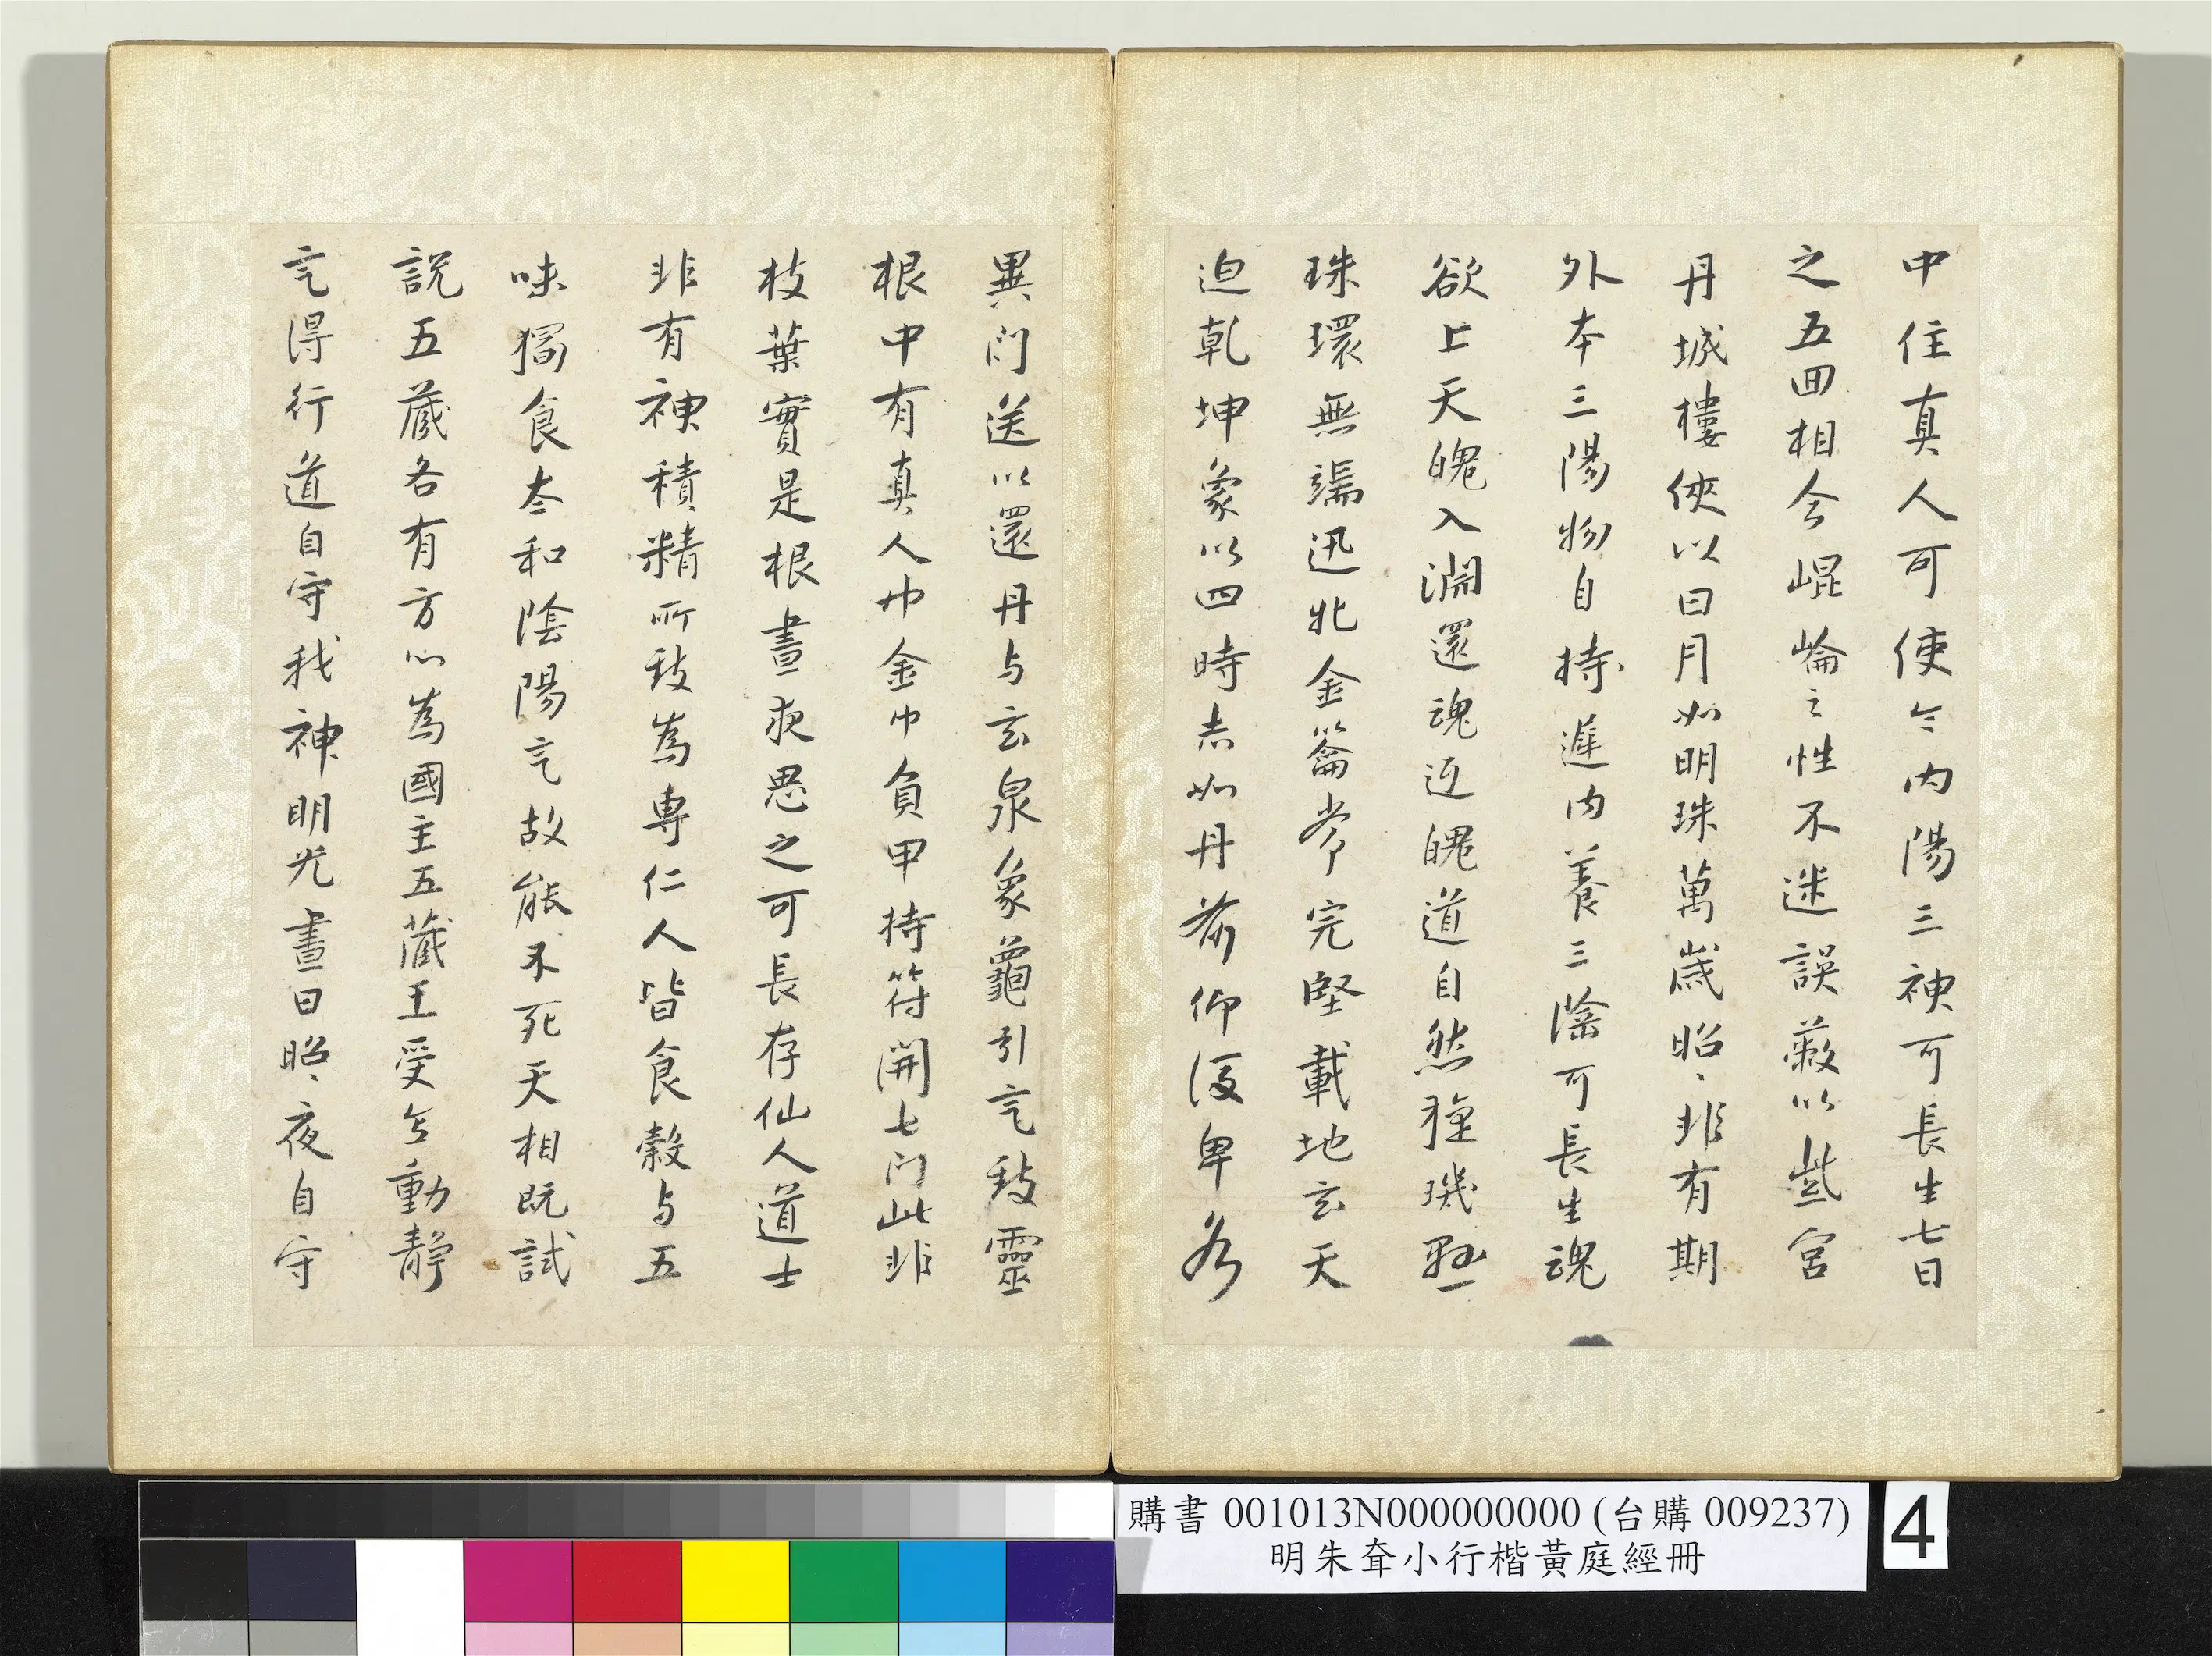 中住真人可使令內陽三神可長生七日
之五回相合崐崘之性不迷誤蔽以紫宮
丹城樓俠以日月如明珠萬歲昭〻非有期
外本三陽物自持遲內養三陰可長生魂
欲上天魄入淵還魂返魄道自然璣懸
珠環無端迅牝金籥常完堅載地玄天
迫乾坤象以四時赤如丹前仰後卑各
異門送以還丹与玄泉象龜引气致靈
根中有真人巾金巾負甲持符開七門此非
枝葉實是根晝夜思之可長存仙人道士
非有神積精所致為專仁人皆食穀与五
味獨食太和陰陽气故能不死天相既試
說五藏各有方心為國主五藏王受動靜
气得行道自守我神明光晝日昭〻夜自守
購書 001013N000000000 (台購 009237)
明朱耷小行楷黃庭經冊
4